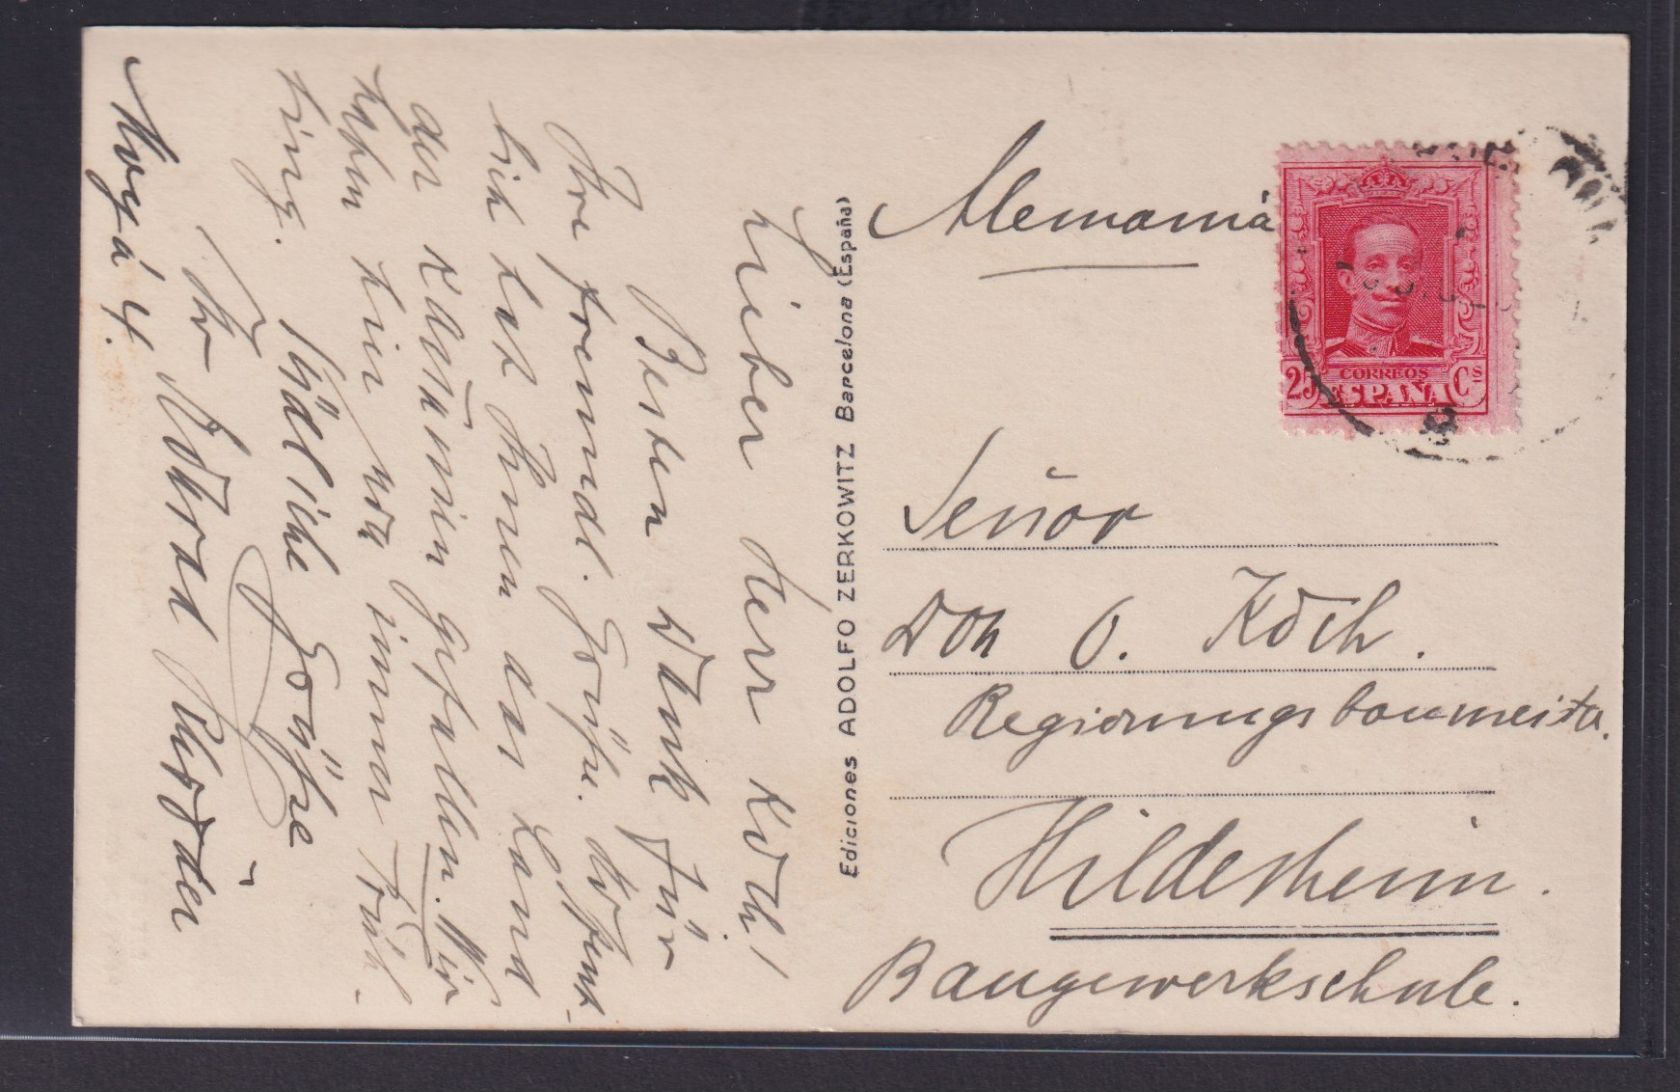 Lieber Herr Koch!
Besten Dank für
Ihre freundl. Grüße. Hoffent-
lich hat Ihnen das Land
der gefallen. Wir
haben hier noch immer Früh-
ling. Herzliche Grüße
Ihr
4.
Ediciones ADOLFO ZERKOWITZ Barcelona (España)
Alemania
CORREOS
25 ESPAÑA Cs
Señor
Don O. Koch.
Regierungsbaumeister.
Hildesheim.
Baugewerkschule.